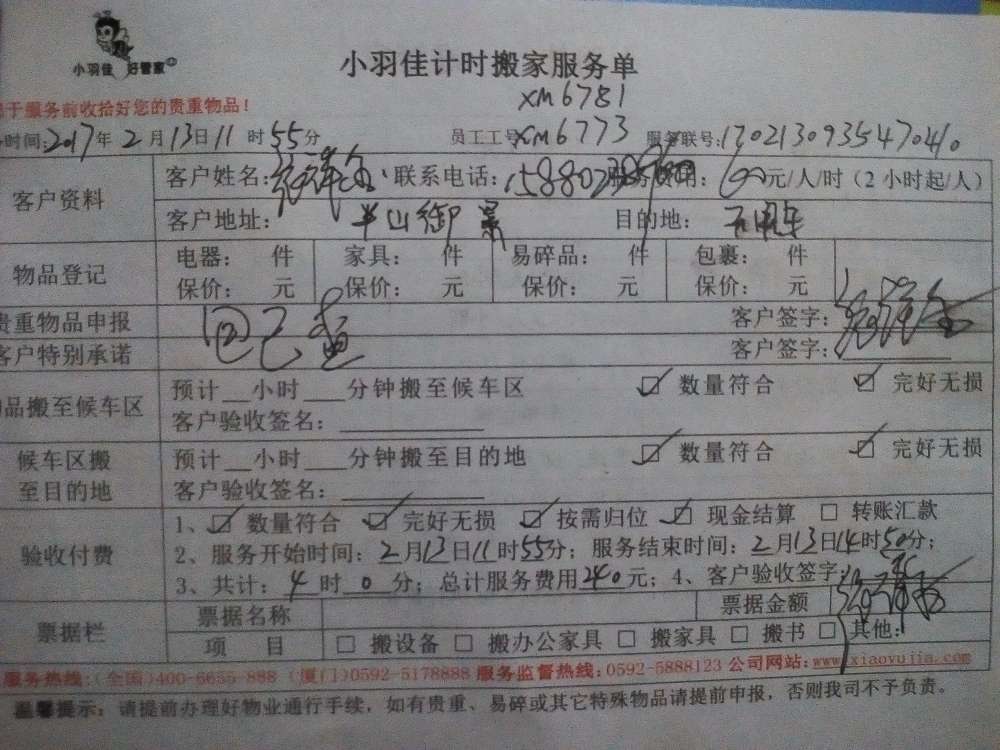 小羽佳 好管家
小羽佳计时搬家服务单
XM6781
于服务前收拾好您的贵重物品！
时间:2017年 2 月 13日 11 时 55分 员工工号:XM6773 服务联号:1702130935470410
客户资料 客户姓名: 联系电话: 服务费用: 60元/人/时（2小时起/人）
客户地址: 半山御景 目的地:
物品登记 电器： 件 家具： 件 易碎品： 件 包裹： 件
保价： 元 保价： 元 保价： 元 保价： 元
贵重物品申报 客户签字:
客户特别承诺 客户签字:
品搬至候车区 预计__小时___分钟搬至候车区 ☑ 数量符合 ☑ 完好无损
客户验收签名:
候车区搬至目的地 预计__小时___分钟搬至目的地 ☑ 数量符合 ☑ 完好无损
客户验收签名:
验收付费 1、☑ 数量符合 ☑ 完好无损 ☑ 按需归位 ☑ 现金结算 □ 转账汇款
2、服务开始时间: 2月13日11时55分；服务结束时间: 2月13日14时50分；
3、共计: 4 时 0 分；总计服务费用240元；4、客户验收签字:
票据栏 票据名称 票据金额
项 目 □ 搬设备 □ 搬办公家具 □ 搬家具 □ 搬书 □ 其他:
服务热线:(全国)400-6655-888 (厦门)0592-5178888 服务监督热线:0592-5888123 公司网站:www.xiaoyujia.com
温馨提示：请提前办理好物业通行手续，如有贵重、易碎或其它特殊物品请提前申报，否则我司不予负责。